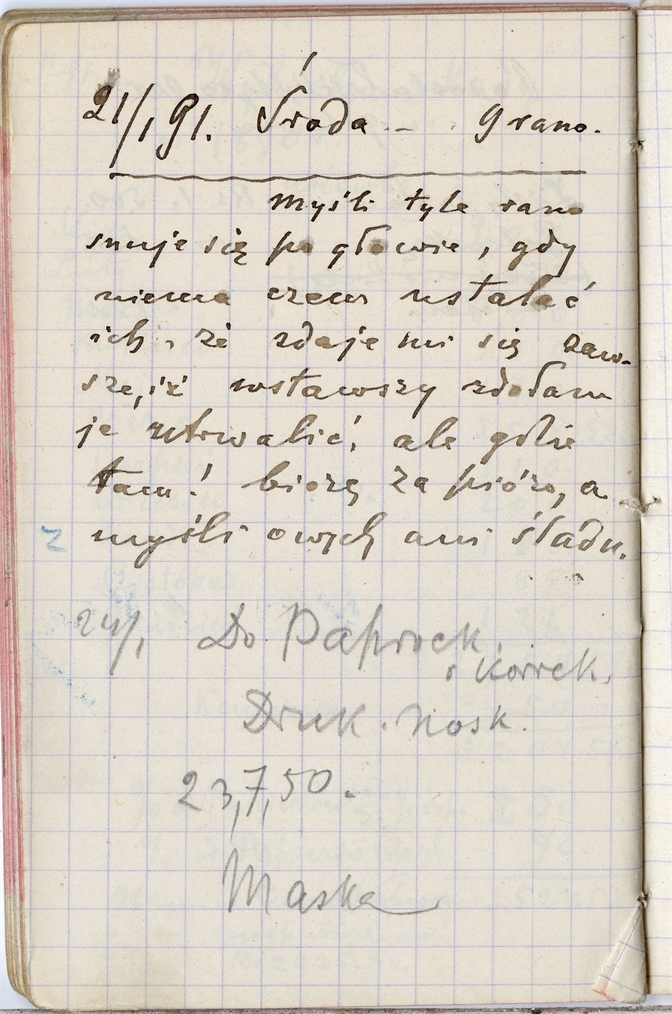 21/1 91. Środa – 9 rano.
Myśli tyle rano
snuje się po głowie, gdy
niema czem ustalać
ich, że zdaje mi się zaw-
sze, iż wstawszy zdołam
je utrwalić, ale gdzie
tam! biorę za pióro, a
myśli owych ani śladu.
24/1 Do Paprock.
i Korrek.
Druk. Nosk.
23,7,50.
Maska